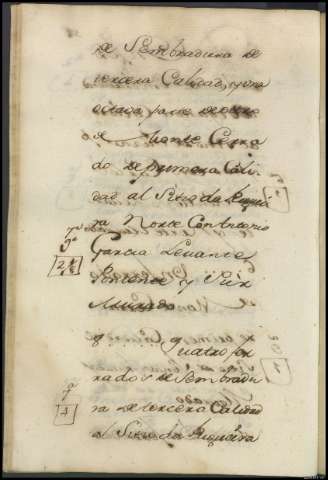 de Sembradura de
tercera Calidad, y una
octava parte de otro
de Monte Cerra
do de primera Cali
dad al Sitio da
ra Norte Con Antonio
Garcia Levante
Poniente y Sur
Murado
Quatro fer
rados de Sembradu
ra de tercera Calidad
al Sitio da Riqueira
4